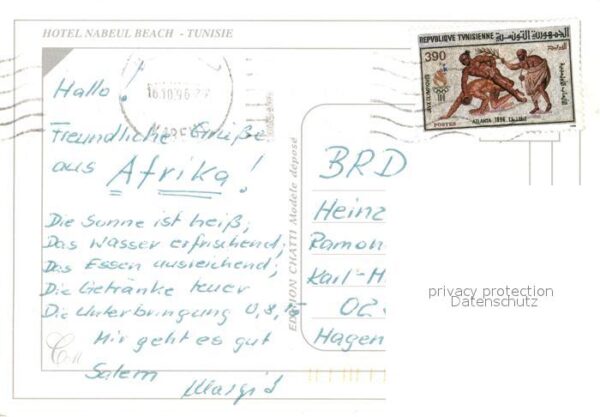 HOTEL NABEUL BEACH - TUNISIE
REPVBLIQVE TVNISIENNE الجمهورية التونسية
390
JEUX OLYMPIQUES
ATLANTA 1996
POSTES
16.10.96
Hallo!
Freundliche Grüße
aus Afrika!
Die Sonne ist heiß;
Das Wasser erfrischend;
Das Essen ausreichend;
Die Getränke teuer
Die Unterbringung 0,8,15
Mir geht es gut
Salem
Margid
EDITION CHATTI Modèle déposé
BRD
Heinz
Ramon
Karl-H
02
Hagen
privacy protection
Datenschutz